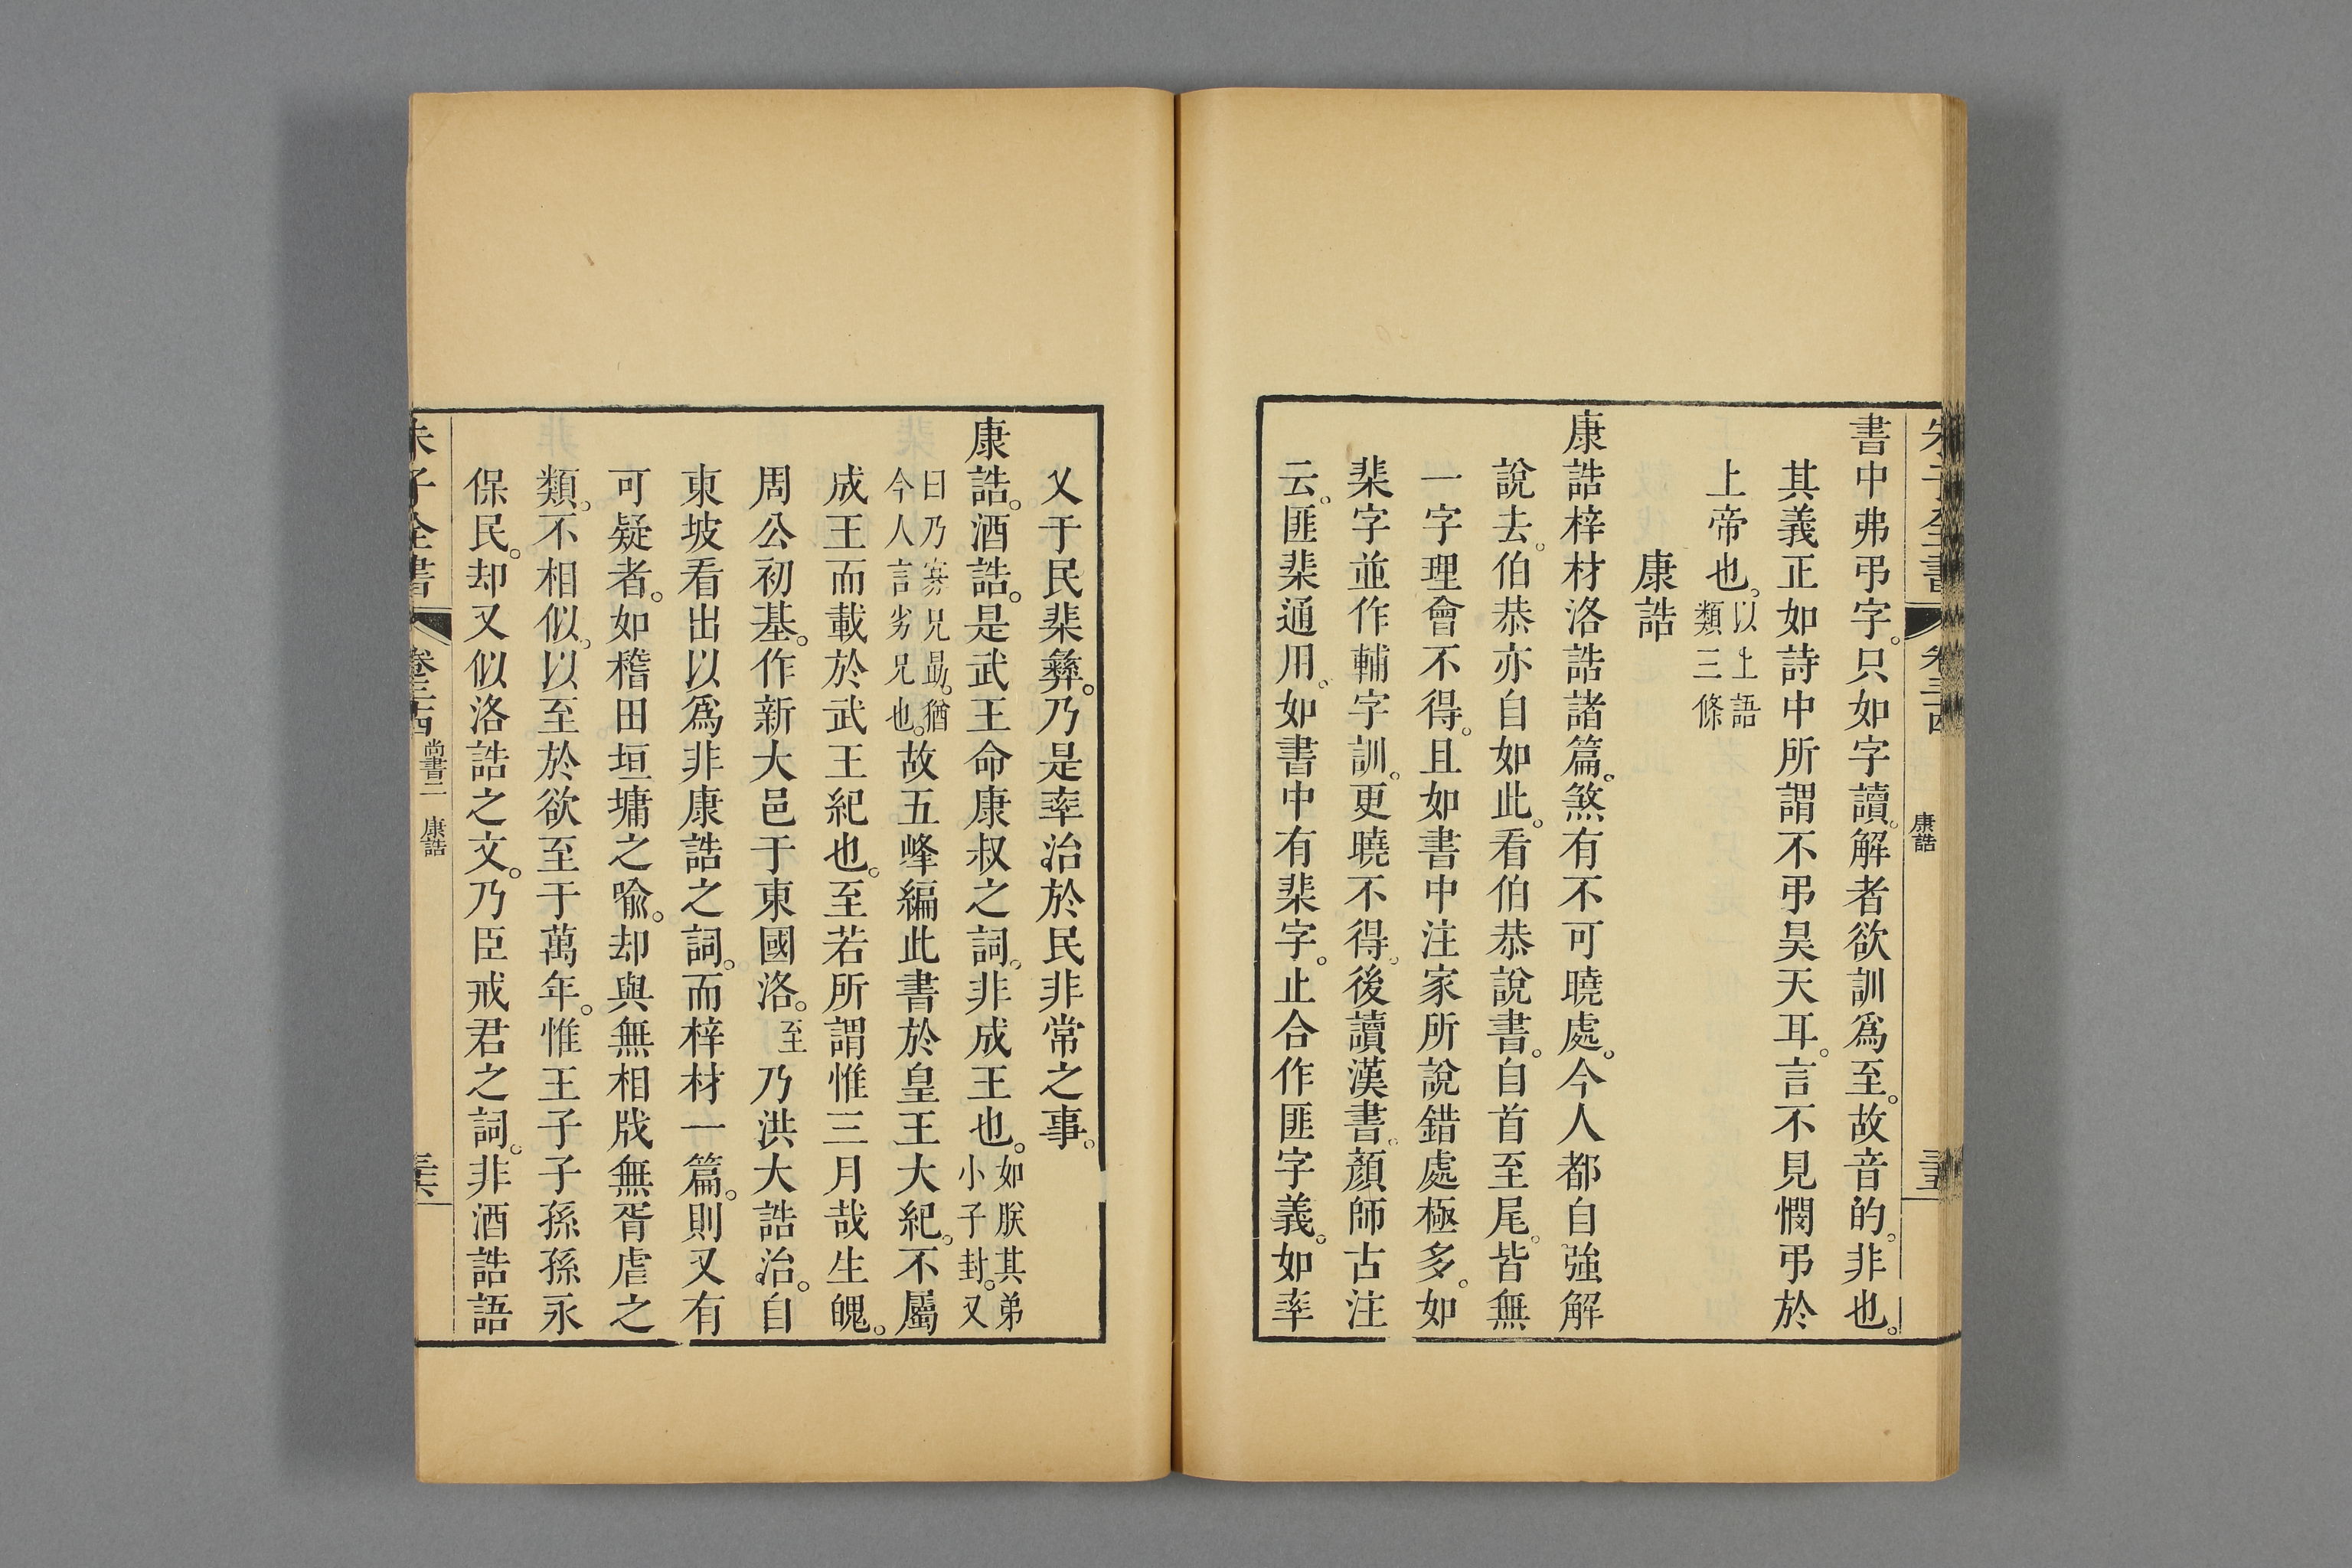 康誥
書中弗弔字。只如字讀。解者欲訓爲至。故音的。非也。
其義正如詩中所謂不弔昊天耳。言不見憫弔於
上帝也。以上語類三條
康誥
康誥梓材洛誥諸篇。煞有不可曉處。今人都自強解
說去。伯恭亦自如此。看伯恭說書。自首至尾。皆無
一字理會不得。且如書中注家所說錯處極多。如
棐字並作輔字訓。更曉不得。後讀漢書。顏師古注
云。匪棐通用。如書中有棐字。止合作匪字義。如率
乂于民棐彝。乃是率治於民非常之事。
康誥。酒誥。是武王命康叔之詞。非成王也。如朕其弟小子封。又
曰乃寡兄勗。猶今人言劣兄也。故五峰編此書於皇王大紀。不屬
成王而載於武王紀也。至若所謂惟三月哉生魄。
周公初基。作新大邑于東國洛。至乃洪大誥治。自
東坡看出以爲非康誥之詞。而梓材一篇。則又有
可疑者。如稽田垣墉之喻。却與無相戕無胥虐之
類。不相似。以至於欲至于萬年。惟王子子孫孫永
保民。却又似洛誥之文。乃臣戒君之詞。非酒誥語
朱子全書 卷三十四 尚書二 康誥